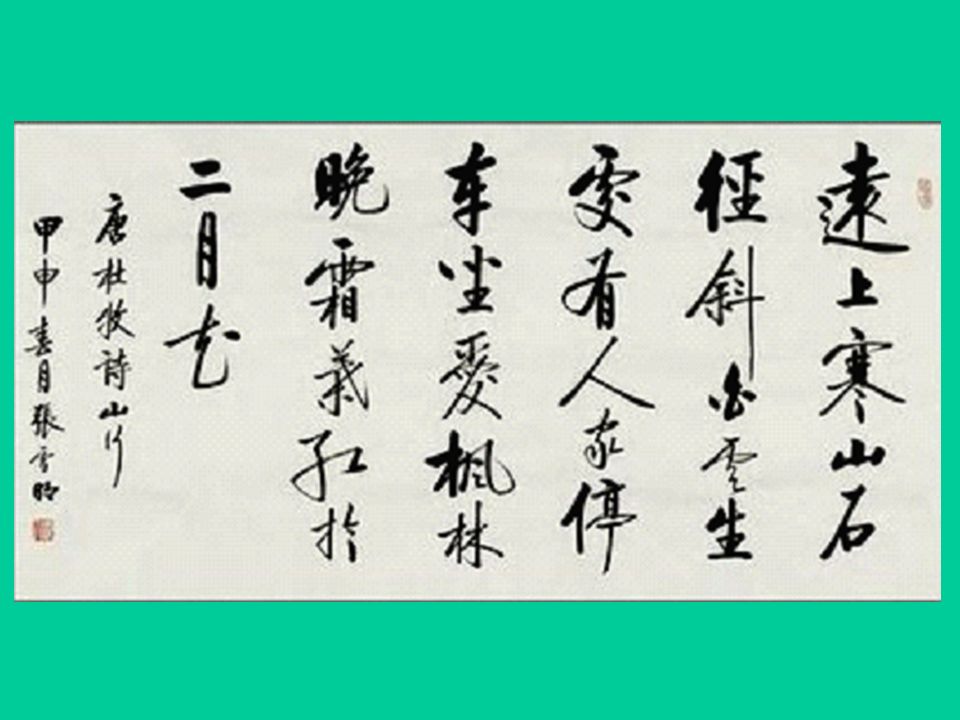 遠上寒山石
徑斜白雲生
處有人家停
車坐愛楓林
晚霜葉紅於
二月花
唐杜牧詩山行
甲申春月張雪